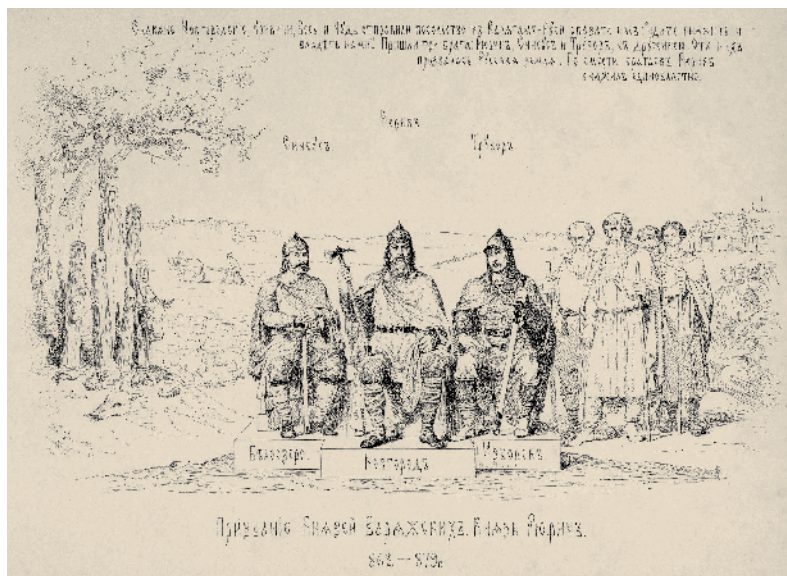 Славяне Новгородские, Кривичи, Весь и Чудь отправили посольство къ Варягамъ-Руси сказать имъ: "Идите княжить и
владеть нами". Пришли три брата: Рюрикъ, Синеусъ и Труворъ, съ дружиной. Отъ нихъ
прозвалась Русская земля. По смерти братьевъ Рюрикъ
единовластно.
Рюрикъ
Синеусъ Труворъ
Бѣлоозеро. Новгородъ Изборскъ.
Призваніе Князей Варяжскихъ. Князь Рюрикъ.
862.—879г